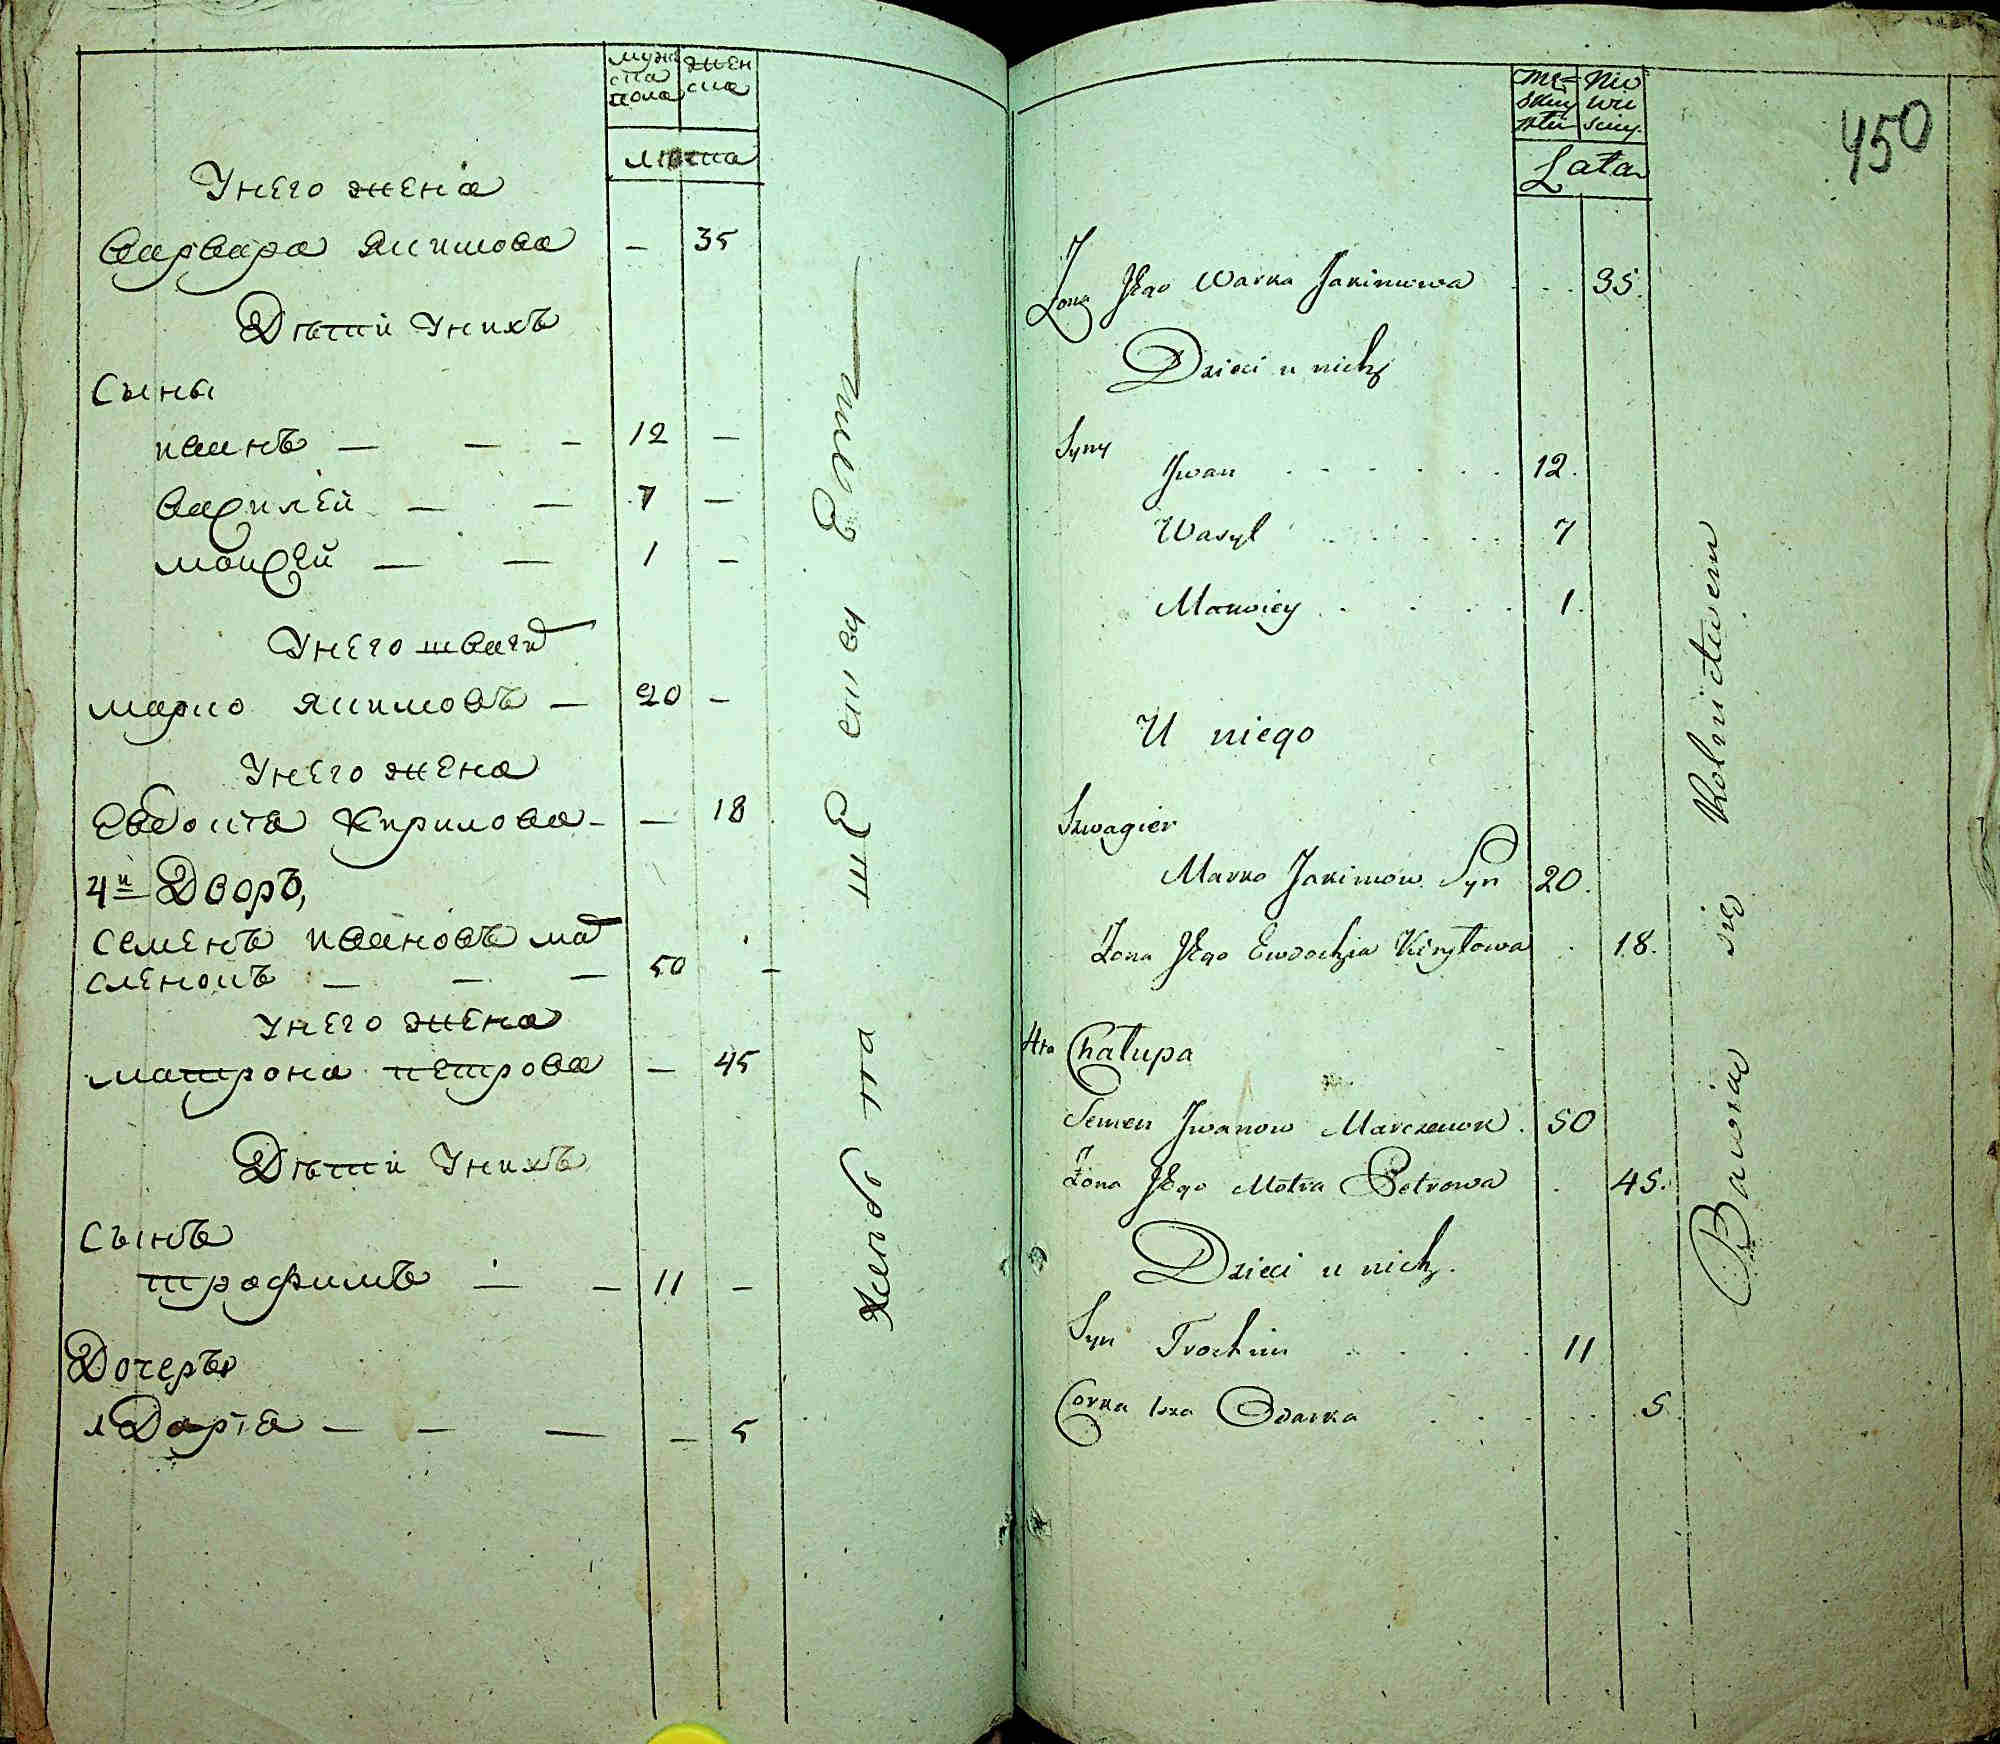 мужс жен
ска ска
пола
лѣта
У него жена
Варвара Якимова — 35
Дѣти у нихъ
Сыны
иванъ — — — 12 —
василей — — 7 —
моисей — — 1 —
У него швагер
марко якимовъ — 20 —
У него жена
Евдокıя Кирилова — — 18
4й Дворъ,
семенъ ивановъ мар
ченокъ — — — 50 —
У него жена
матрона петрова — 45
Дѣти у нихъ
Сынъ
трофимъ — — 11 —
Дочерь
1 Дарıя — — — — 5
450
Męż Nie
skiey wie
płci sciey
Lata
Żona Jego Warka Jakimowa . . 35.
Dzieci u nich
Syny
Jwan . . . . . . 12.
Wasyl . . . . . 7
Mowsiey . . . . 1.
U niego
Szwagier
Marko Jakimow Syn 20.
Żona Jego Ewdochia Kiryłowa . 18.
4ta Chałupa
Semen Jwanow Marczenok . 50
Żona Jego Motra Petrowa . 45.
Dzieci u nich.
Syn Trochim . . . . 11
Corka 1sza Odarka . . . . . 5.
Bawiąc się Rolnictwem